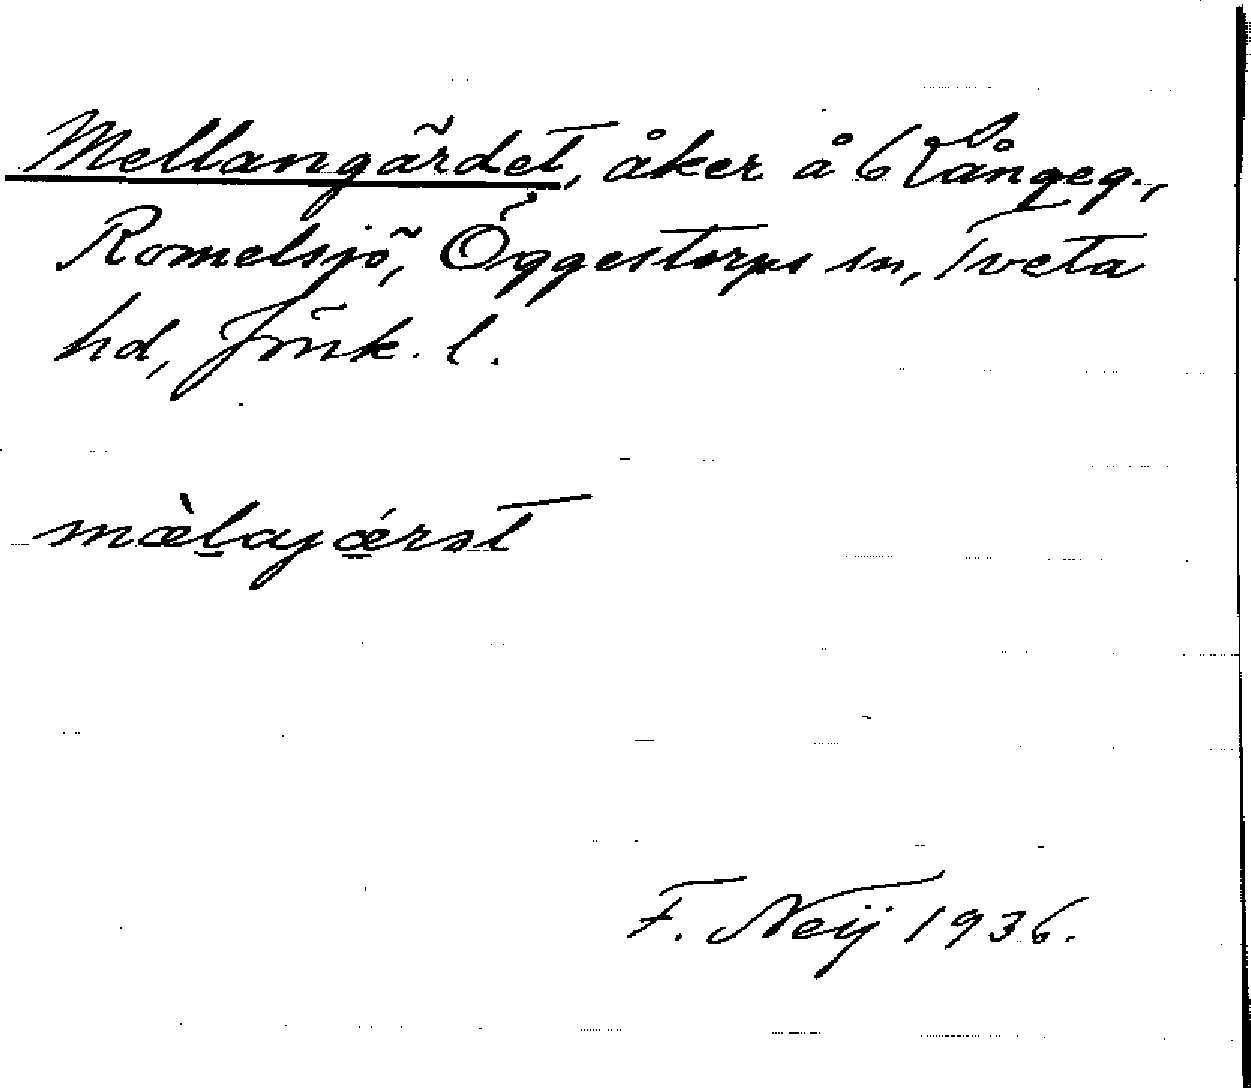 Mellangärdet, åker å 6 Långeg.,
Romelsjö, Öggestorps sn, Tveta
hd, Jönk. l.
mæ̀l̠ajǽ̠rət
F. Neij 1936.